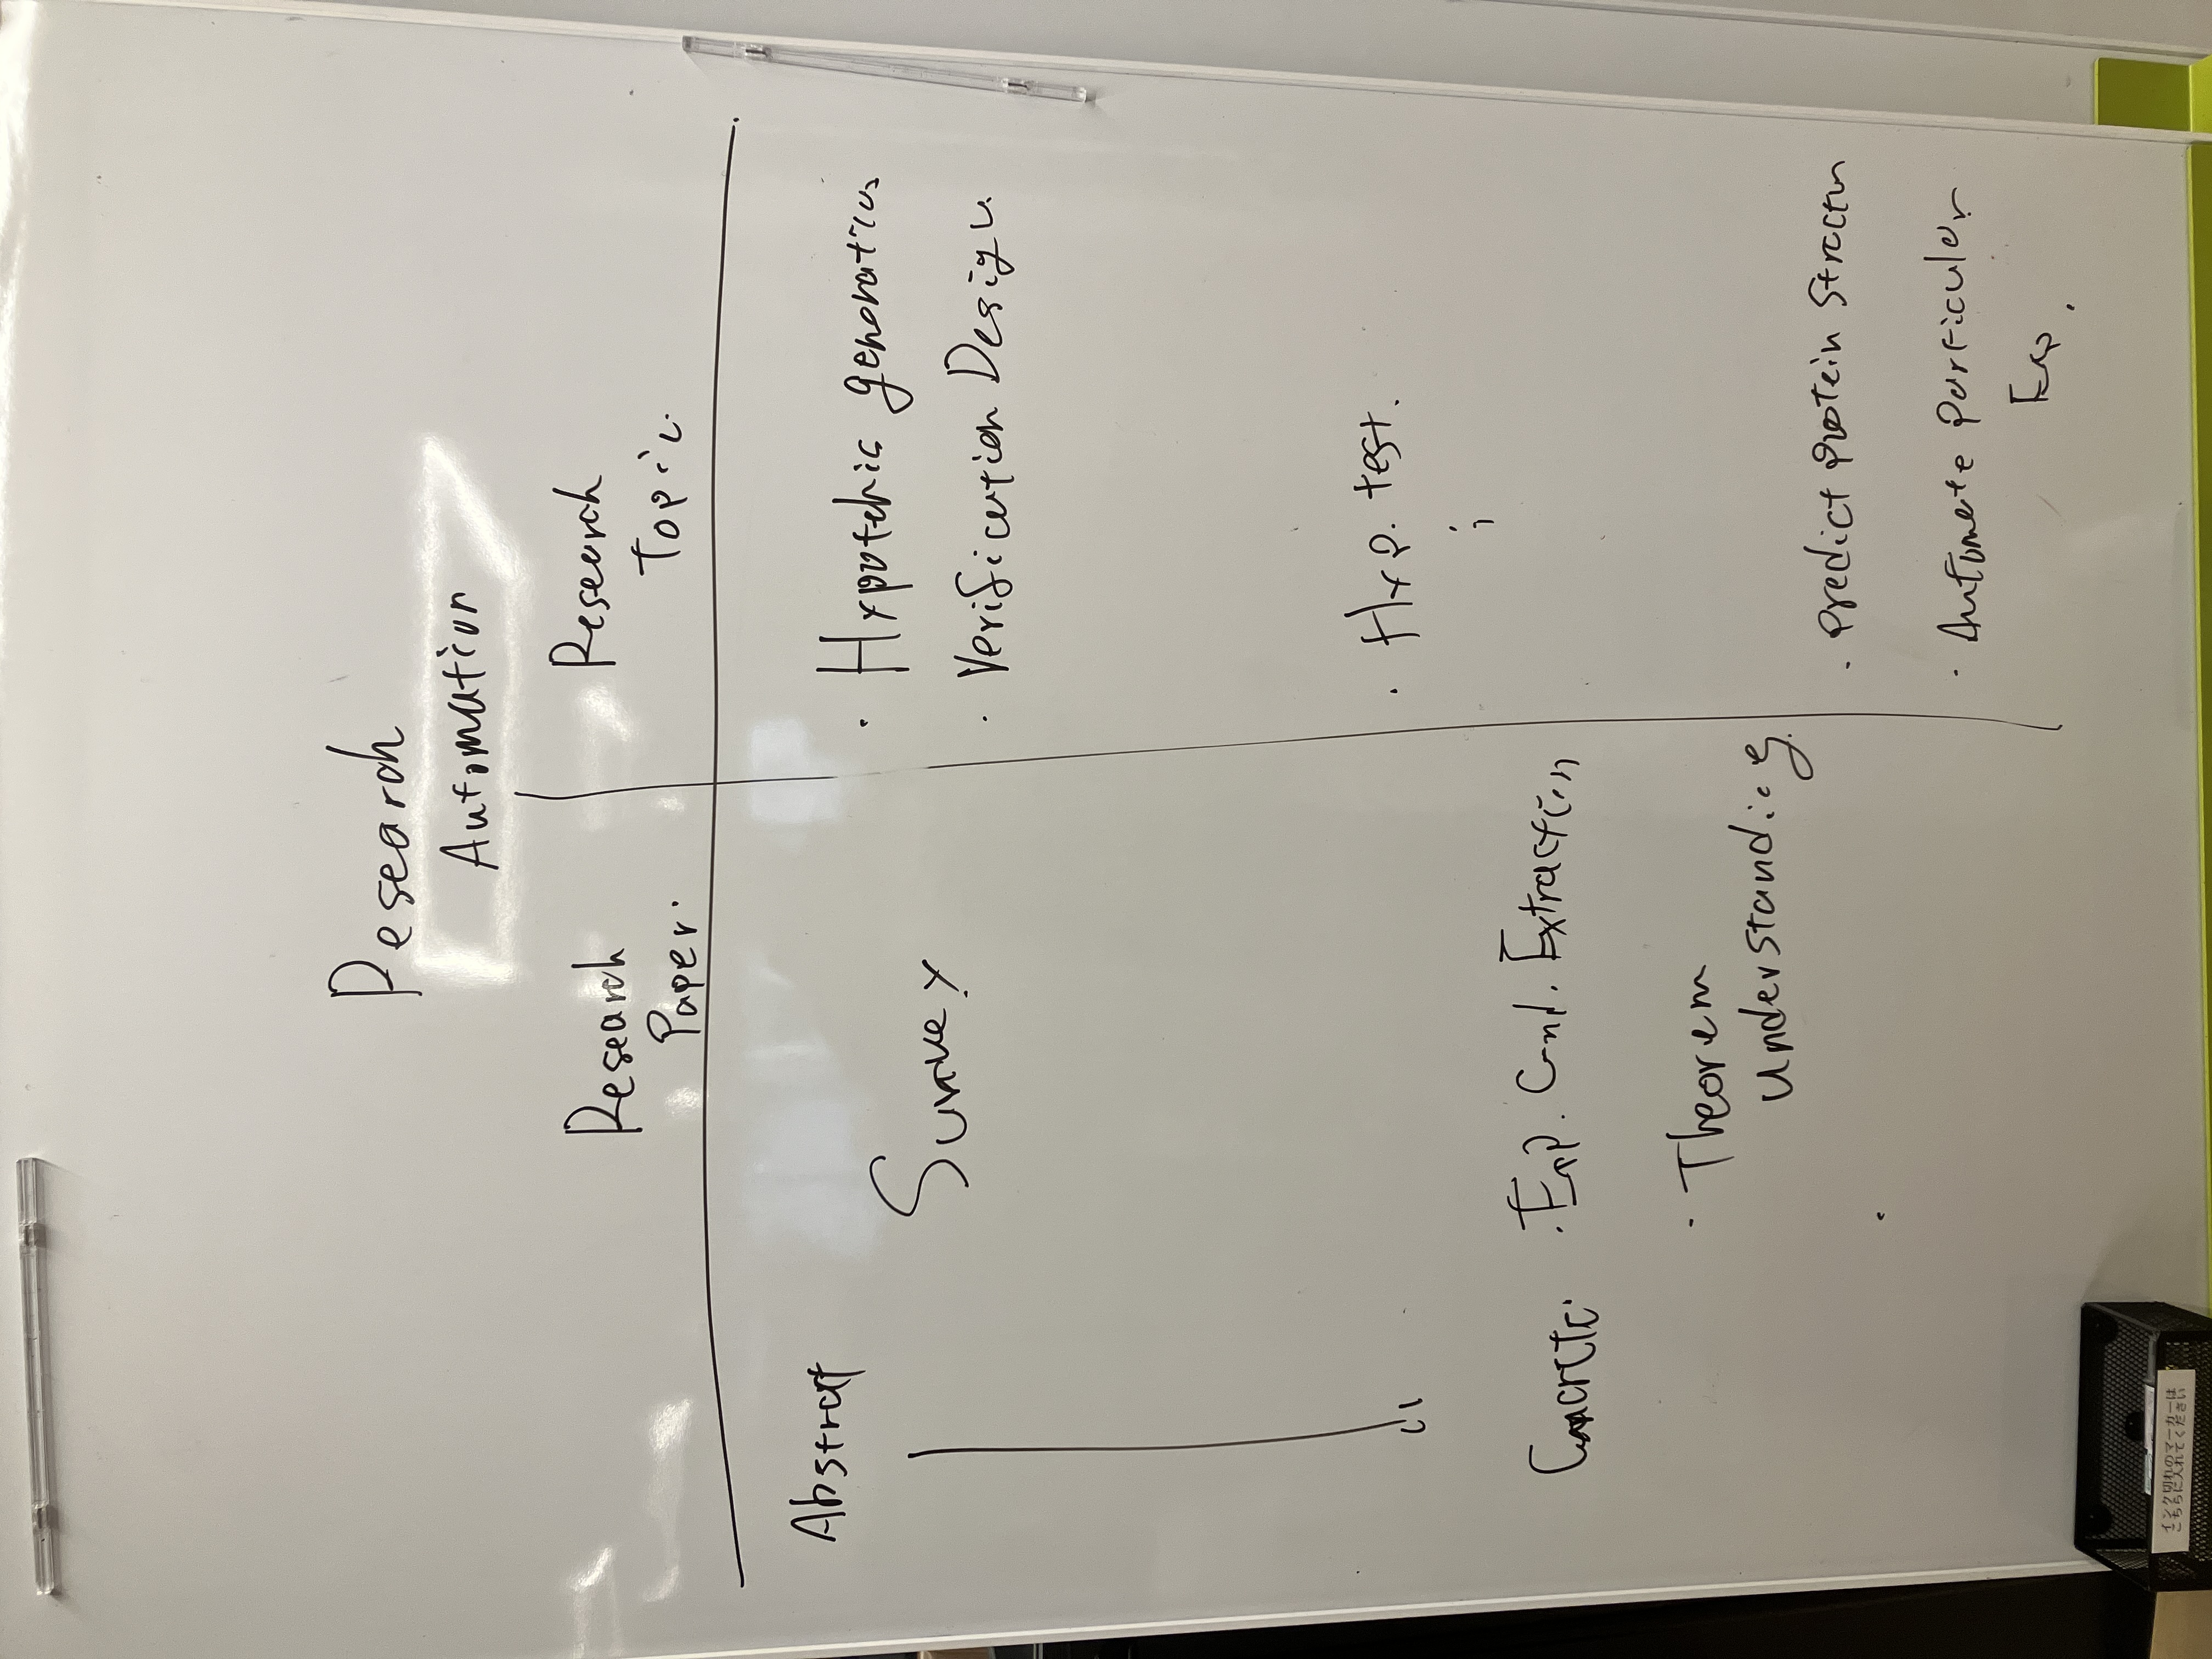 Research
Automation
Research
Paper.
Research
Topic.
Abstract
Survey
· Hypothesis generation
· Verification Design.
· Hyp. test.
Concrete.
· Exp. Cnd. Extraction
· Theorem
understanding
· predict protein Structure
· Automate particular
Exp.
インク切れのマーカーは
こちらに入れてください